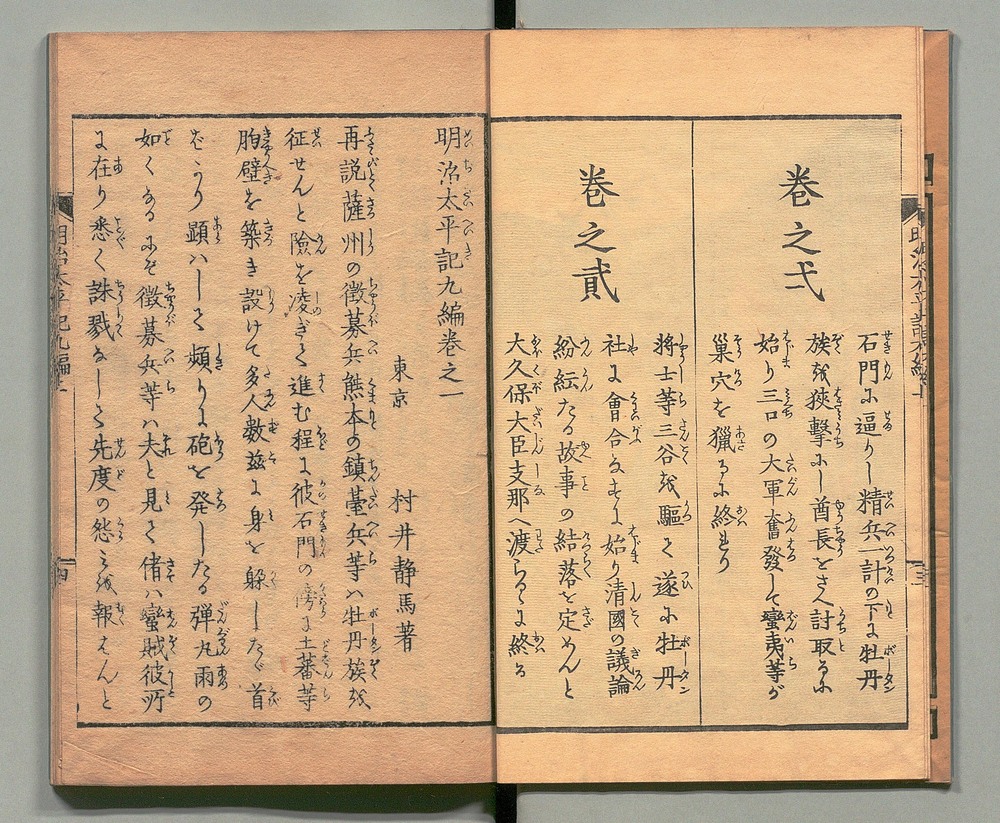 卷之弌
石門に逼りし精兵一計の下に牡丹
族を狹擊にし酋長をさへ討取るに
始り三口の大軍奮發して蠻夷等が
巢穴を獵るに終れり
卷之貳
將士等三谷を驅て遂に牡丹
社に會合なすに始り清國の議論
紛紜たる故事の結落を定めんと
大久保大臣支那へ渡らるゝに終る
明治太平記九編卷之一
東京 村井静馬著
再説薩州の徵募兵熊本の鎮臺兵等ハ牡丹族を
征せんと險を凌ぎて進む程に彼石門の傍に土蕃等
胸壁を築き設けて多人數茲に身を躱したゞ首
ばかり顕ハして頻りに砲を発したる弾丸雨の
如くなるにぞ徵募兵等ハ夫と見て偖ハ蠻賊彼所
に在り悉く誅戮なして先度の怨ミを報はんと
明治太平記九編上
四